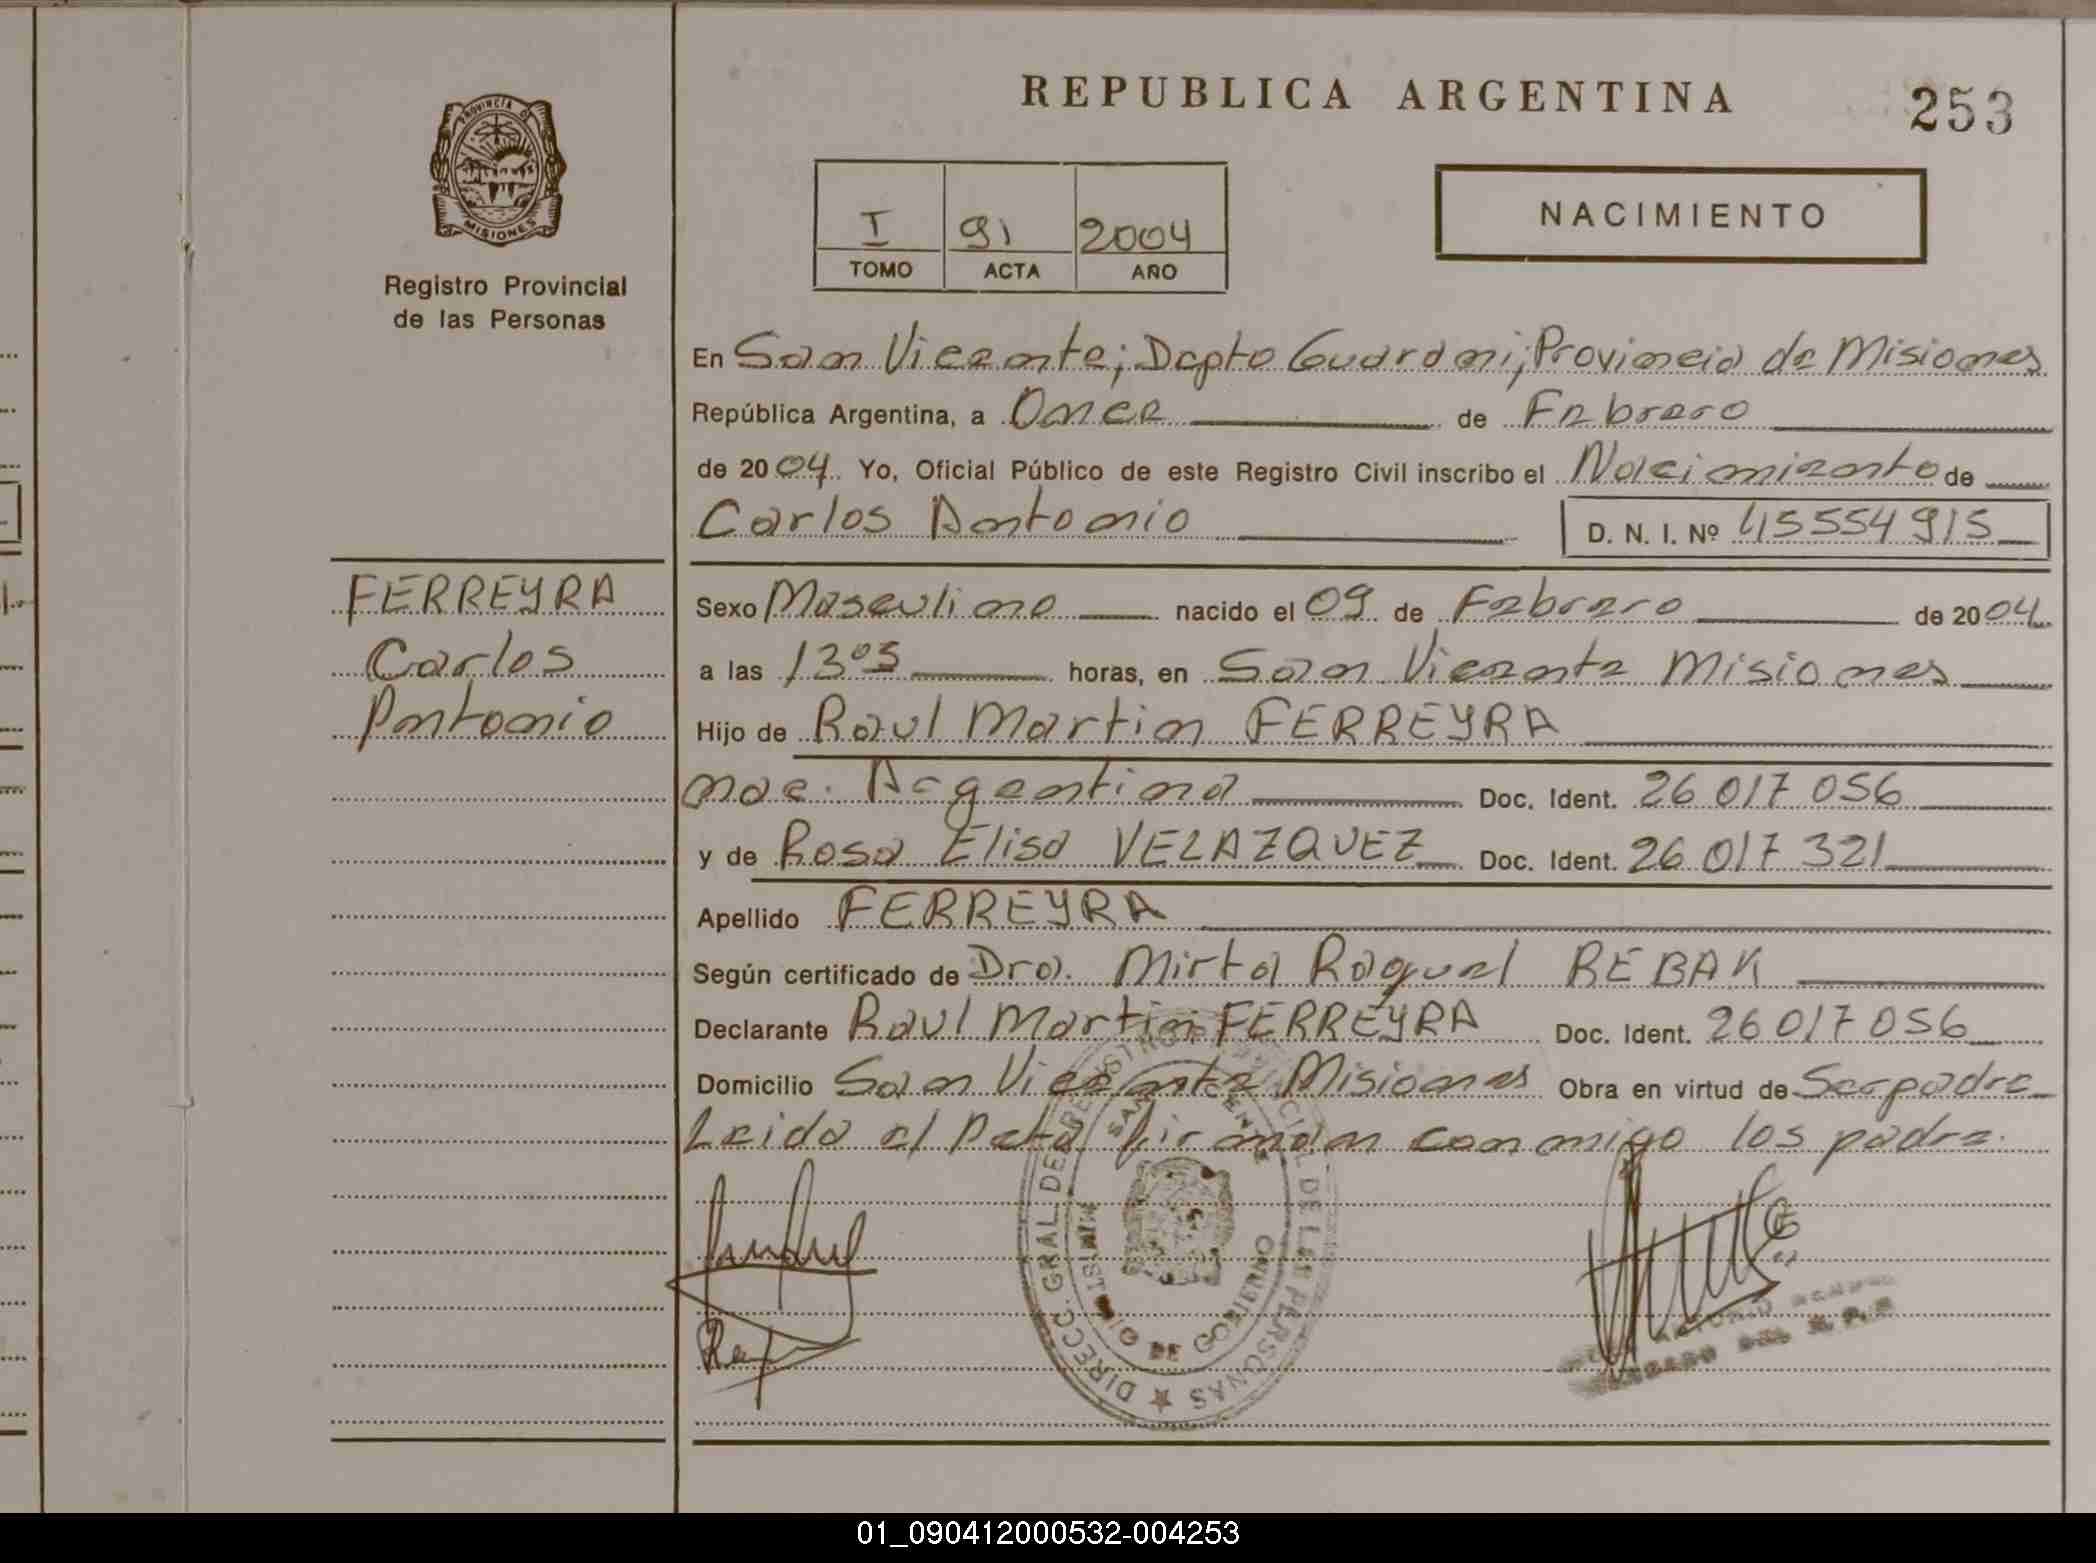 REPUBLICA ARGENTINA
253
PROVINCIA DE
MISIONES
Registro Provincial
de las Personas
I 91 2004
TOMO ACTA AÑO
NACIMIENTO
En San Vicente; Depto Guarani; Provincia de Misiones
República Argentina, a Once de Febrero
de 2004. Yo, Oficial Público de este Registro Civil inscribo el Nacimiento de
Carlos Antonio D. N. I. Nº 45554915
FERREYRA
Carlos
Antonio
Sexo Masculino nacido el 09 de Febrero de 2004
a las 13 05 horas, en San Vicente Misiones
Hijo de Raul Martin FERREYRA
nac. Argentina Doc. Ident. 26 017 056
y de Rosa Elisa VELAZQUEZ Doc. Ident. 26 017 321
Apellido FERREYRA
Según certificado de Dra. Mirta Raquel REBAK
Declarante Raul Martin FERREYRA Doc. Ident. 26 017 056
Domicilio San Vicente Misiones Obra en virtud de Ser padre
Leido el Acta firman conmigo los padre.
DIRECC. GRAL. DE REGISTRO PROVINCIAL DE LAS PERSONAS
SAN VICENTE
MINISTERIO DE GOBIERNO
01_090412000532-004253